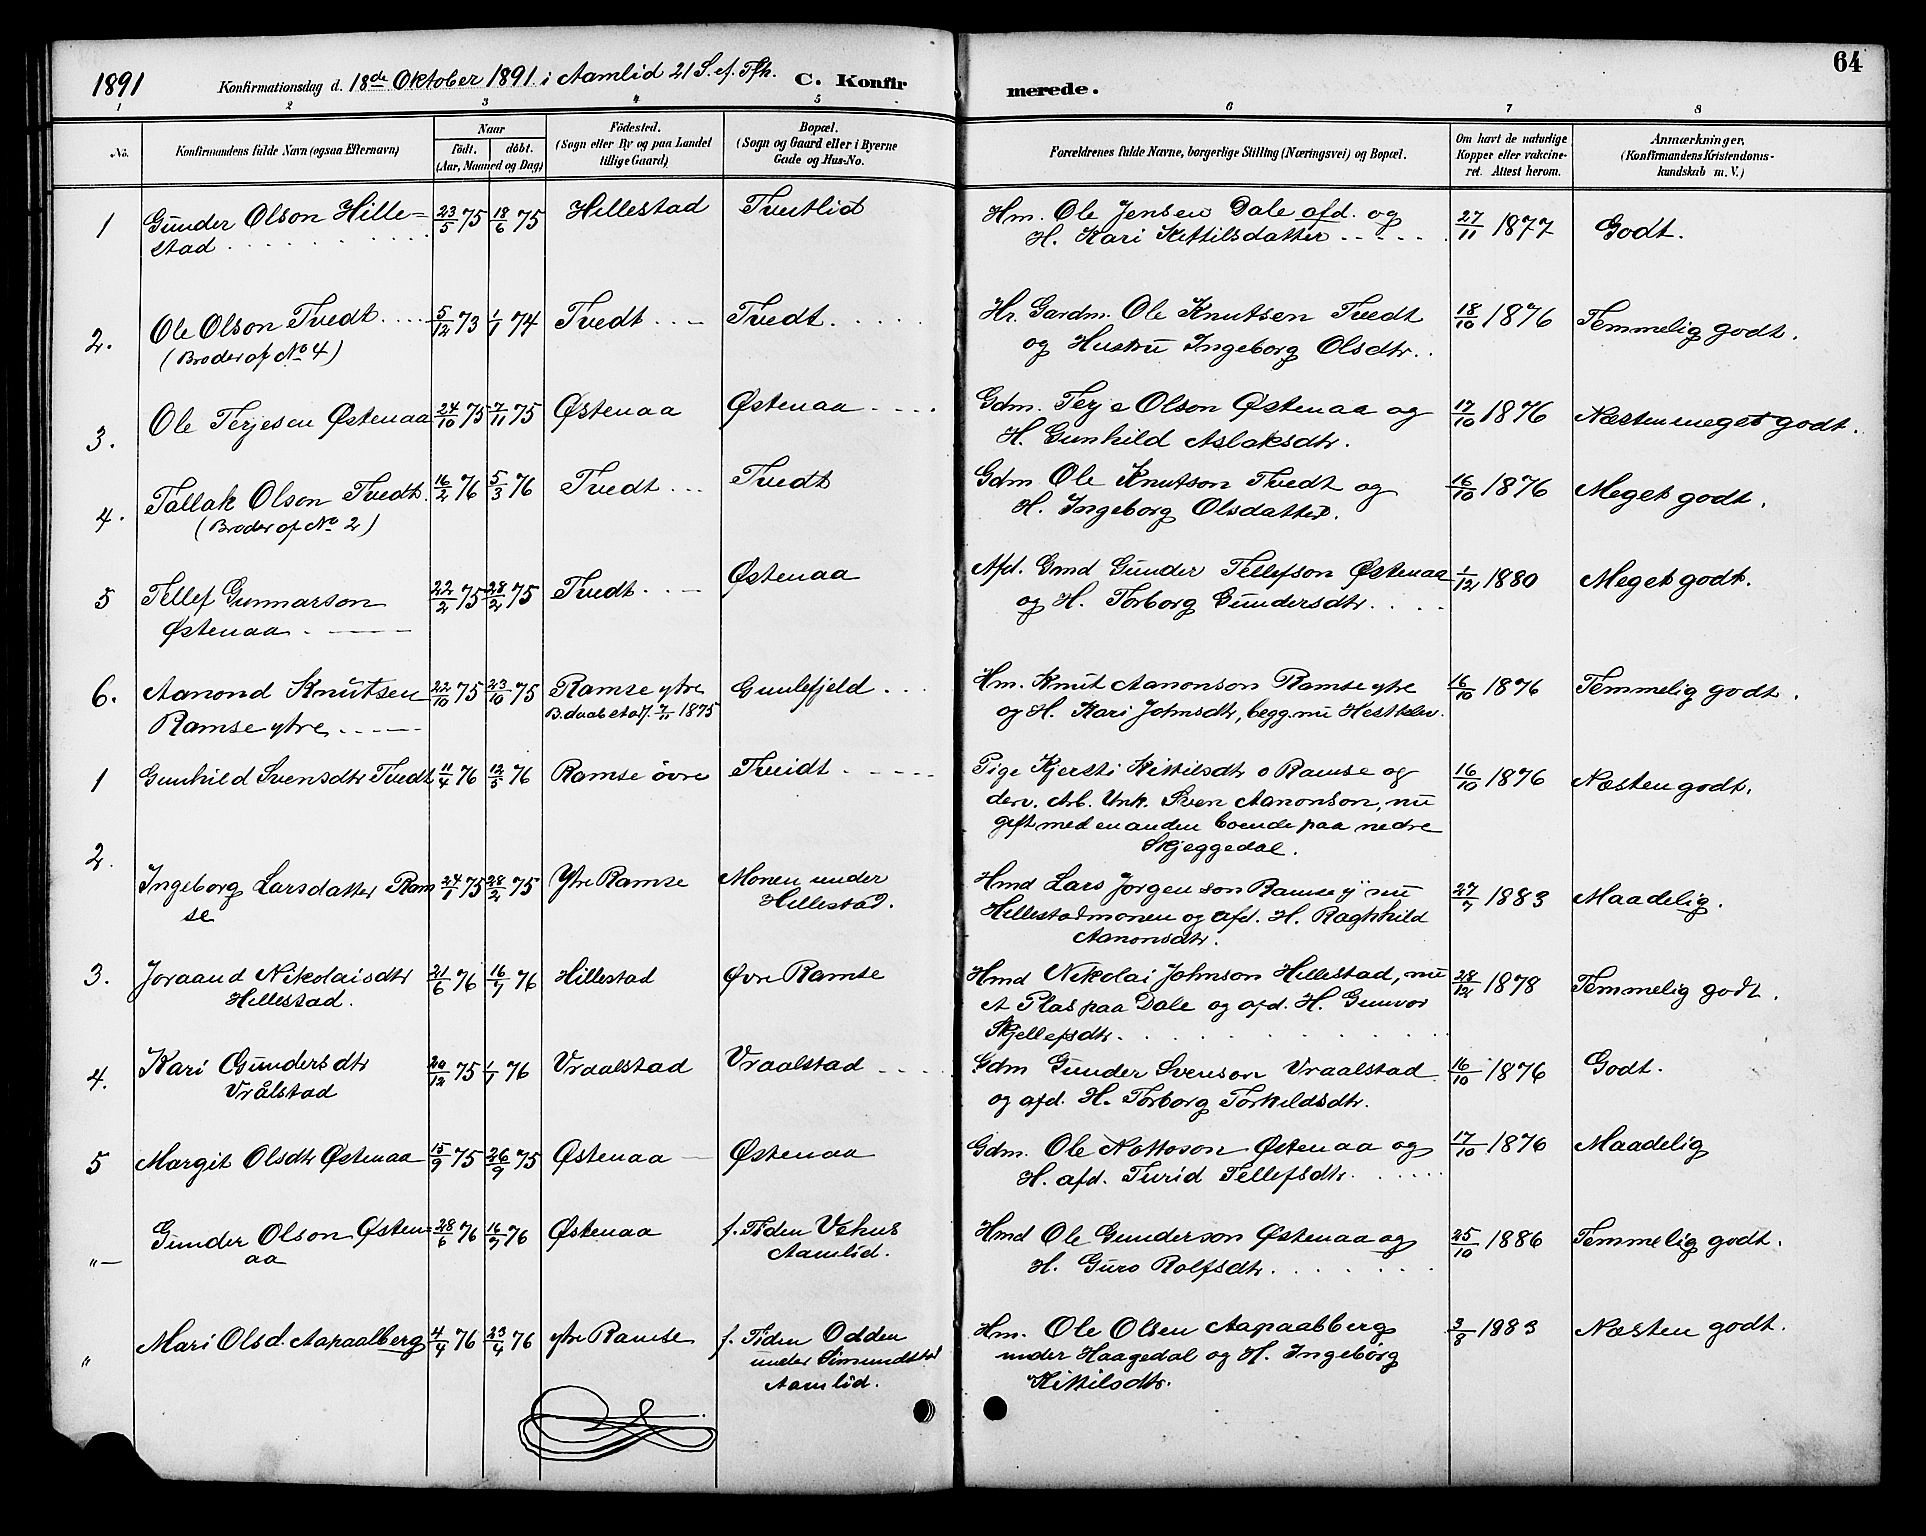 64
1891 Konfirmationsdag d. 18de Oktober 1891. i Aamlid 21 S. ef. Tfh. C. Konfirmerede.
1 2 3 4 5 6 7 8
No.
Konfirmandens fulde Navn (ogsaa Efternavn)
Naar
födt. döbt.
(Aar, Maaned og Dag)
Födested.
(Sogn eller By og paa Landet
tillige Gaard)
Bopæl.
(Sogn og Gaard eller i Byerne
Gade og Hus-No.
Forældrenes fulde Navne, borgerlige Stilling (Næringsvei) og Bopæl.
Om havt de naturlige
Kopper eller vakcine-
ret. Attest herom.
Anmærkninger,
(Konfirmandens Kristendoms-
kundskab m. V.)
1 Gunder Olson Hille= 23/5 75 18/6 75 Hillestad Tveitlid Hm. Ole Jensen Dale afd. og 27/11 1877 Godt.
stad H. Kari Kittilsdatter
2. Ole Olson Tvedt 5/12 73 1/1 74 Tvedt Tvedt Hr. Gardm. Ole Knutsen Tvedt 18/10 1876 Temmelig godt.
(Broder af No 4) og Hustru Ingeborg Olsdtr.
3. Ole Terjesen Østenaa 24/10 75 7/11 75 Østenaa Østenaa Gdm. Terje Olson Østenaa og 17/10 1876 Næsten meget godt.
H. Gunhild Aslaksdtr.
4. Tallak Olson Tvedt 16/2 76 5/3 76 Tvedt Tvedt Gdm Ole Knutson Tvedt og 16/10 1876 Meget godt.
(Broder af No 2) H. Ingeborg Olsdatter.
5 Tellef Gunnarson 22/2 75 28/2 75 Tvedt Østenaa Afd. Gmd Gunder Tellefson Østenaa 1/12 1880 Meget godt.
Østenaa og H. Torborg Gundersdtr.
6. Aanond Knutsen 22/10 75 23/10 75 Ramse ytre Gunlefjeld Hm. Knut Aanonson Ramse ytre 16/10 1876 Temmelig godt.
Ramse ytre B. daab stadf. 7/11 1875 og H. Kari Johnsdtr, begg. nu
1 Gunhild Svensdtr Tvedt 11/4 76 12/5 76 Ramse övre Tveidt Pige Kjersti Kittilsdtr o Ramse og 16/10 1876 Næsten godt.
derv. Arb. Unk. Sven Aanonson, nu
gift med en anden boende paa nedre
Skjeggedal.
2. Ingeborg Larsdatter Ram 24/1 75 28/2 75 Ytre Ramse Monen under Hmd Lars Jörgenson Ramse y nu 27/7 1883 Maadelig.
se Hillestad. Hillestadmonen og afd. H. Raghhild
Aanonsdtr.
3. Joraand Nikolaisdtr 21/6 76 16/7 76 Hillestad Øvre Ramse Hmd Nikolai Johnson Hillestad, nu 28/12 1878 Temmelig godt.
Hillestad. et Plas paa Dale og afd. H. Gunvor
Kjellefsdtr.
4. Kari Gundersdtr 20/12 75 1/1 76 Vraalstad Vraalstad Gdm Gunder Svenson Vraalstad 16/10 1876 Godt.
Vrålstad og afd. H. Torborg Torkildsdtr.
5 Margit Olsdtr Østenaa 15/9 75 26/9 75 Østenaa Østenaa Gdm. Ole Nottoson Østenaa og 17/10 1876 Maadelig
H. afd. Turid Tellefsdtr.
"— Gunder Olson Østen= 28/6 76 16/7 76 Østenaa f. Tiden Vehus Hmd Ole Gunderson Østenaa og 25/10 1886 Temmelig godt.
aa Aamlid. H. Guro Rolfsdtr.
" Mari Olsd. Aapaalberg 4/4 76 23/4 76 ytre Ramse f. Tiden Odden Hm. Ole Olsen Aapaabberg 3/8 1883 Næsten godt.
under Simundstad under Haagedal og H. Ingeborg
Aamlid. Kittilsdtr.